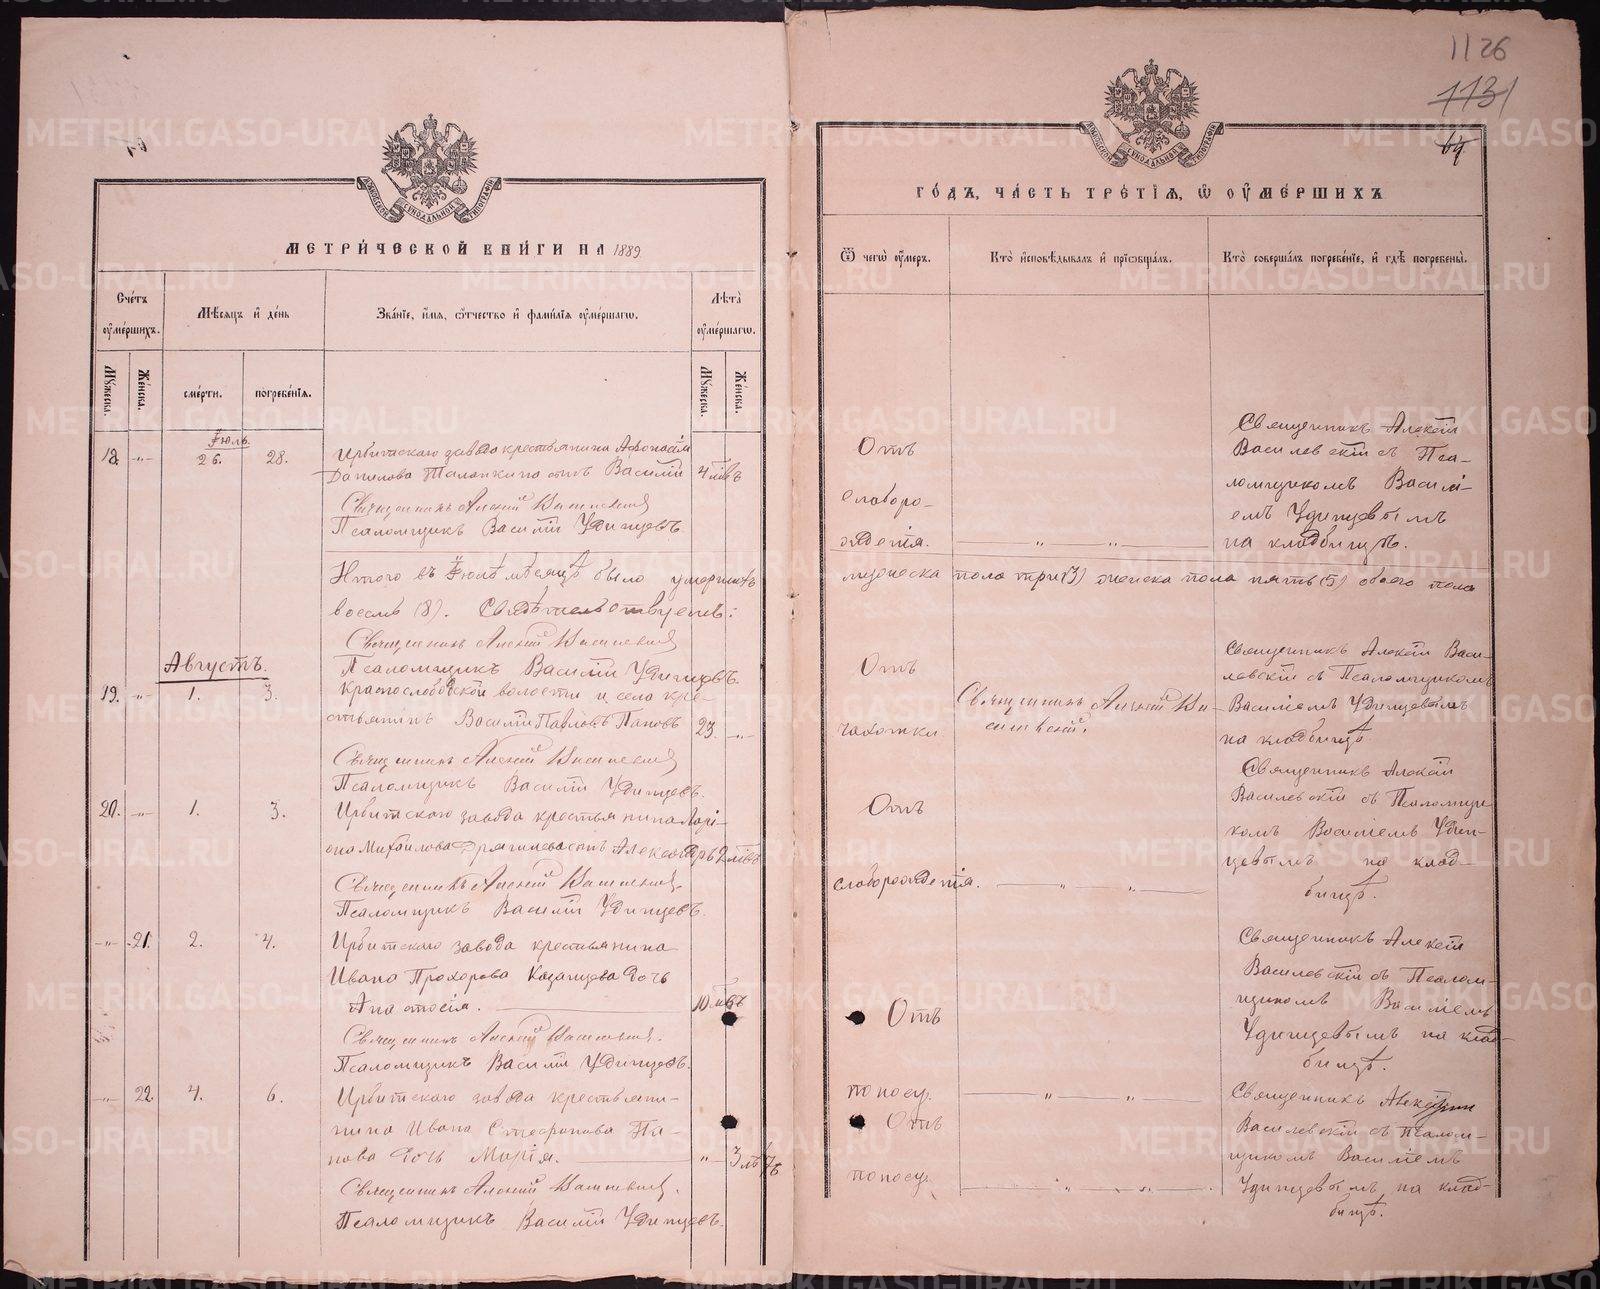 МЕТРИ́ЧЕСКОЙ КНИ́ГИ НА 1889
Сче́тъ
оу҆ме́ршихъ.
Мѣ́сяцъ и҆ де́нь
Зва́нїе, и҆́мя, ѻ҆́тчество и҆ фами́лїя оу҆ме́ршагѡ.
Лѣ́та
оу҆ме́ршагѡ.
Мꙋ́жеска.
Же́нска.
сме́рти.
погребе́нїя.
Мꙋ́жеска.
Же́нска.
Іюль.
18. -„- 26. 28. Ирбитскаго завода крестьянина Афонасія
Данилова Таланкина сынъ Василій 4 лѣтъ
Священникъ Алексій Василевскій
Псаломщикъ Василій Удинцевъ.
Итого въ Іюлѣ мѣсяцѣ было умершихъ
восемь (8). Свидѣтельствуемъ:
Священникъ Алексій Василевскій
Псаломщикъ Василій Удинцевъ.
Августъ.
19. -„- 1. 3. Краснослободской волости и села кре-
стьянинъ Василій Павловъ Пановъ 23. -„-
Священникъ Алексій Василевскій
Псаломщикъ Василій Удинцевъ.
20. -„- 1. 3. Ирбитскаго завода крестьянина Ларі-
она Михайлова сынъ Александръ 2 лѣтъ
Священникъ Алексій Василевскій.
Псаломщикъ Василій Удинцевъ.
-„- 21. 2. 4. Ирбитскаго завода крестьянина
Ивана Прохорова Казанцева дочь
Анастасія. 10.
Священникъ Алексій Василевскій.
Псаломщикъ Василій Удинцевъ.
-„- 22. 4. 6. Ирбитскаго завода крестьяни-
нина Ивана Стефанова Па-
нова дочь Марія. „ 3
Священникъ Алексій Василевскій.
Псаломщикъ Василій Удинцевъ.
1126
1131
ГО́ДЪ, ЧА́СТЬ ТРЕ́ТЇЯ, Ѡ҆ ОУ҆МЕ́РШИХЪ
Ѿ чегѡ̀ оу҆́меръ.
Кто̀ и҆сповѣ́дывалъ и҆ прїѡбща́лъ.
Кто̀ соверша́лъ погребе́нїе, и҆ гдѣ̀ погребены̀.
Отъ
слаборо-
жденія. „ „
Священникъ Алексій
Василевскій съ Пса-
ломщикомъ Васил-
емъ Удинцевымъ
на кладбищѣ.
мужеска пола три (3) женска пола пять (5) обоего пола
Отъ
чахотки
Священникъ Алексій Ва-
силевскій.
Священникъ Алексій Васи-
левскій съ Псаломщикомъ
Василіемъ Удинцевымъ
на кладбищѣ.
Отъ
слаборожденія. „ „
Священникъ Алексій
Василевскій съ Псаломщи
комъ Василіемъ Удин-
цевымъ на клад-
бищѣ.
Отъ
поносу. „ „
Священникъ Алексій
Василевскій съ Псалом-
щикомъ Василіемъ
Удинцевымъ на клад-
бищѣ.
Отъ
поносу. „ „
Священникъ Алексій
Василевскій съ Псалом-
щикомъ Василіемъ
Удинцевымъ на клад-
бищѣ.
METRIKI.GASO-URAL.RU